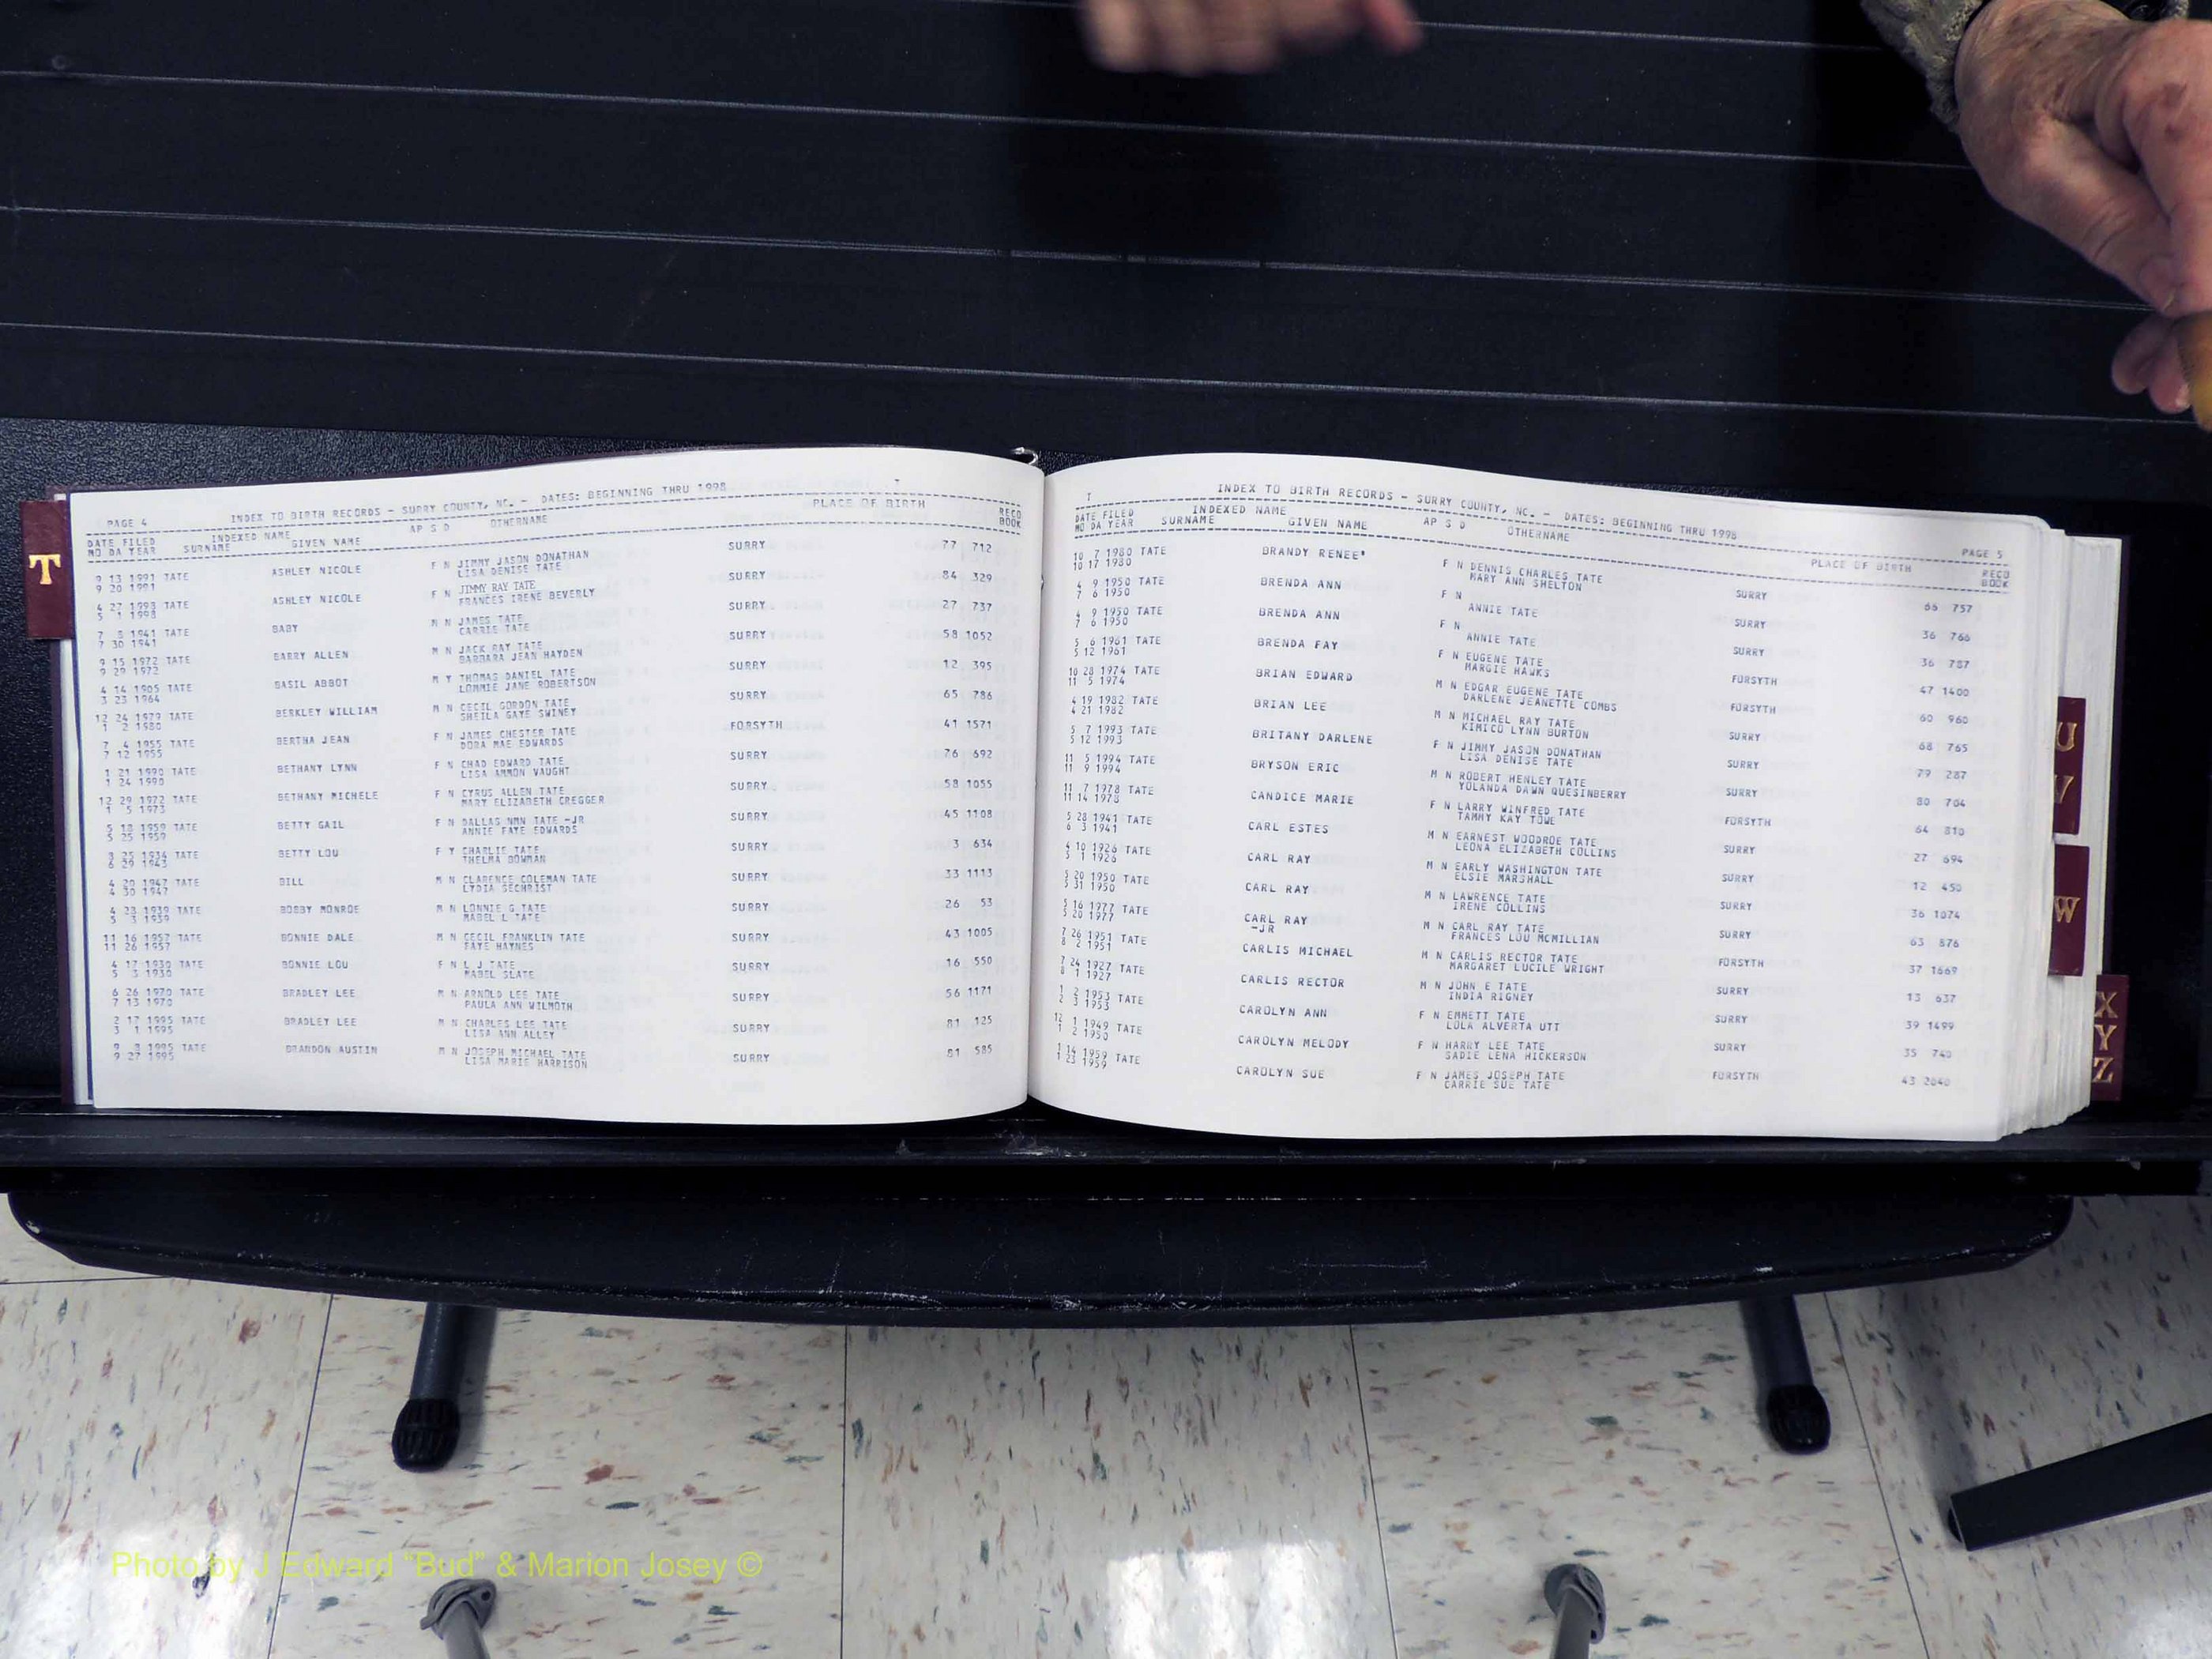 T
PAGE 4 INDEX TO BIRTH RECORDS - SURRY COUNTY, NC. - DATES: BEGINNING THRU 1998 T
DATE FILED INDEXED NAME AP S D OTHERNAME PLACE OF BIRTH RECD
MO DA YEAR SURNAME GIVEN NAME BOOK
9 13 1991 TATE ASHLEY NICOLE F N JIMMY JASON DONATHAN SURRY 77 712
9 20 1991 LISA DENISE TATE
4 27 1998 TATE ASHLEY NICOLE F N JIMMY RAY TATE SURRY 84 329
5 1 1998 FRANCES IRENE BEVERLY
7 8 1941 TATE BABY M N JAMES TATE SURRY 27 737
7 30 1941 CARRIE TATE
9 15 1972 TATE BARRY ALLEN M N JACK RAY TATE SURRY 58 1052
9 29 1972 BARBARA JEAN HAYDEN
4 14 1905 TATE BASIL ABBOT M Y THOMAS DANIEL TATE SURRY 12 395
3 23 1964 LOMMIE JANE ROBERTSON
12 24 1979 TATE BERKLEY WILLIAM M N CECIL GORDON TATE SURRY 65 786
1 2 1980 SHEILA GAYE SWINEY
7 4 1955 TATE BERTHA JEAN F N JAMES CHESTER TATE FORSYTH 41 1571
7 12 1955 DORA MAE EDWARDS
1 21 1990 TATE BETHANY LYNN F N CHAD EDWARD TATE SURRY 76 692
1 24 1990 LISA AMMON VAUGHT
12 29 1972 TATE BETHANY MICHELE F N CYRUS ALLEN TATE SURRY 58 1055
1 5 1973 MARY ELIZABETH CREGGER
5 18 1959 TATE BETTY GAIL F N DALLAS NMN TATE -JR SURRY 45 1108
5 25 1959 ANNIE FAYE EDWARDS
TATE BETTY LOU F Y CHARLIE TATE SURRY 3 634
THELMA BOWMAN
4 20 1947 TATE BILL M N CLARENCE COLEMAN TATE SURRY 33 1113
4 30 1947 LYDIA SECHRIST
4 23 1939 TATE BOBBY MONROE M N LONNIE G TATE SURRY 26 53
5 3 1939 MABEL L TATE
11 16 1957 TATE BONNIE DALE M N CECIL FRANKLIN TATE SURRY 43 1005
11 26 1957 FAYE HAYNES
4 17 1930 TATE BONNIE LOU F N L J TATE SURRY 16 550
5 3 1930 MABEL SLATE
6 26 1970 TATE BRADLEY LEE M N ARNOLD LEE TATE SURRY 56 1171
7 13 1970 PAULA ANN WILMOTH
2 17 1995 TATE BRADLEY LEE M N CHARLES LEE TATE SURRY 81 125
3 1 1995 LISA ANN ALLEY
9 8 1995 TATE BRANDON AUSTIN M N JOSEPH MICHAEL TATE SURRY 81 585
9 27 1995 LISA MARIE HARRISON
T INDEX TO BIRTH RECORDS - SURRY COUNTY, NC. - DATES: BEGINNING THRU 1998 PAGE 5
DATE FILED INDEXED NAME AP S D OTHERNAME PLACE OF BIRTH RECD
MO DA YEAR SURNAME GIVEN NAME BOOK
10 7 1980 TATE BRANDY RENEE' F N DENNIS CHARLES TATE SURRY 66 757
10 17 1980 MARY ANN SHELTON
4 9 1950 TATE BRENDA ANN F N SURRY 36 766
7 6 1950 ANNIE TATE
4 9 1950 TATE BRENDA ANN F N SURRY 36 787
7 6 1950 ANNIE TATE
5 6 1961 TATE BRENDA FAY F N EUGENE TATE FORSYTH 47 1400
5 12 1961 MARGIE HAWKS
10 28 1974 TATE BRIAN EDWARD M N EDGAR EUGENE TATE FORSYTH 60 960
11 5 1974 DARLENE JEANETTE COMBS
4 19 1982 TATE BRIAN LEE M N MICHAEL RAY TATE SURRY 68 765
4 21 1982 KIMICO LYNN BURTON
5 7 1993 TATE BRITANY DARLENE F N JIMMY JASON DONATHAN SURRY 79 287
5 12 1993 LISA DENISE TATE
11 5 1994 TATE BRYSON ERIC M N ROBERT HENLEY TATE SURRY 80 704
11 9 1994 YOLANDA DAWN QUESINBERRY
11 7 1978 TATE CANDICE MARIE F N LARRY WINFRED TATE FORSYTH 64 810
11 14 1978 TAMMY KAY TOWE
5 28 1941 TATE CARL ESTES M N EARNEST WOODROE TATE SURRY 27 694
6 3 1941 LEONA ELIZABETH COLLINS
4 10 1926 TATE CARL RAY M N EARLY WASHINGTON TATE SURRY 12 450
5 1 1926 ELSIE MARSHALL
5 20 1950 TATE CARL RAY M N LAWRENCE TATE SURRY 36 1074
5 31 1950 IRENE COLLINS
5 16 1977 TATE CARL RAY M N CARL RAY TATE SURRY 63 876
5 20 1977 -JR FRANCES LOU MCMILLIAN
7 26 1951 TATE CARLIS MICHAEL M N CARLIS RECTOR TATE FORSYTH 37 1669
8 2 1951 MARGARET LUCILE WRIGHT
7 24 1927 TATE CARLIS RECTOR M N JOHN E TATE SURRY 13 637
8 1 1927 INDIA RIGNEY
1 2 1953 TATE CAROLYN ANN F N EMMETT TATE SURRY 39 1499
2 3 1953 LOLA ALVERTA UTT
12 1 1949 TATE CAROLYN MELODY F N HARRY LEE TATE SURRY 35 740
1 2 1950 SADIE LENA HICKERSON
1 14 1959 TATE CAROLYN SUE F N JAMES JOSEPH TATE FORSYTH 43 2640
1 23 1959 CARRIE SUE TATE
U
V
W
X
Y
Z
Photo by J Edward “Bud” & Marion Josey ©